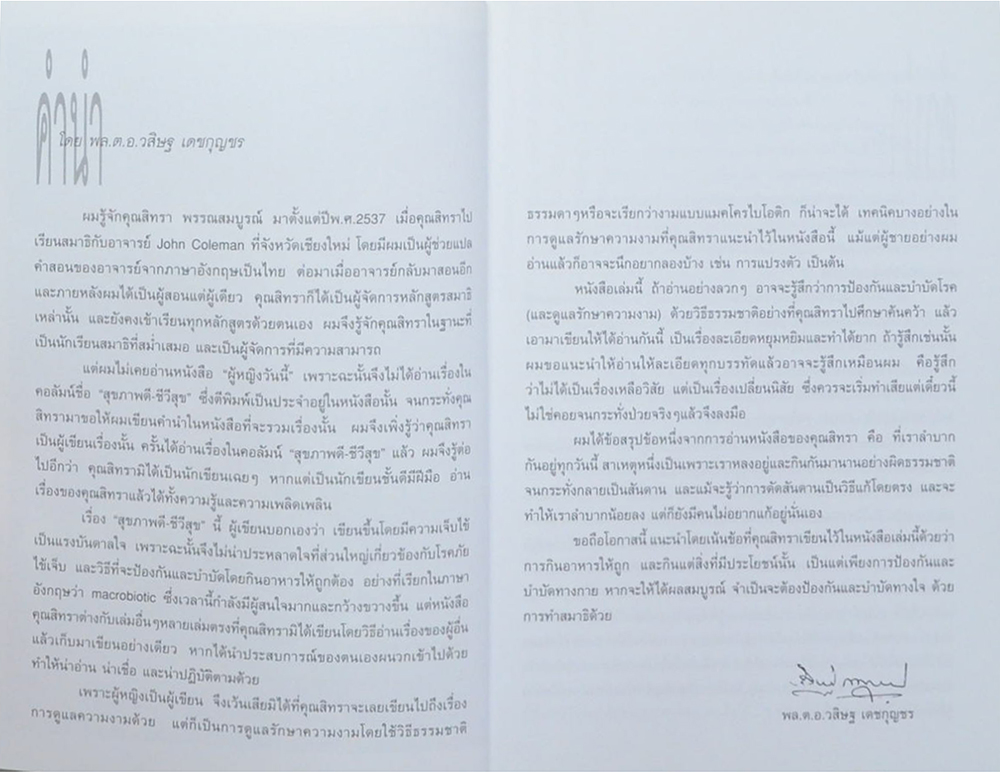 คำนำ
โดย พล.ต.อ.วสิษฐ เดชกุญชร
ผมรู้จักคุณสิทรา พรรณสมบูรณ์ มาตั้งแต่ปีพ.ศ.2537 เมื่อคุณสิทราไป
เรียนสมาธิกับอาจารย์ John Coleman ที่จังหวัดเชียงใหม่ โดยมีผมเป็นผู้ช่วยแปล
คำสอนของอาจารย์จากภาษาอังกฤษเป็นไทย ต่อมาเมื่ออาจารย์กลับมาสอนอีก
และภายหลังผมได้เป็นผู้สอนแต่ผู้เดียว คุณสิทราก็ได้เป็นผู้จัดการหลักสูตรสมาธิ
เหล่านั้น และยังคงเข้าเรียนทุกหลักสูตรด้วยตนเอง ผมจึงรู้จักคุณสิทราในฐานะที่
เป็นนักเรียนสมาธิที่สม่ำเสมอ และเป็นผู้จัดการที่มีความสามารถ
แต่ผมไม่เคยอ่านหนังสือ "ผู้หญิงวันนี้" เพราะฉะนั้นจึงไม่ได้อ่านเรื่องใน
คอลัมน์ชื่อ "สุขภาพดี-ชีวีสุข" ซึ่งตีพิมพ์เป็นประจำอยู่ในหนังสือนั้น จนกระทั่งคุณ
สิทรามาขอให้ผมเขียนคำนำในหนังสือที่จะรวมเรื่องนั้น ผมจึงเพิ่งรู้ว่าคุณสิทรา
เป็นผู้เขียนเรื่องนั้น ครั้นได้อ่านเรื่องในคอลัมน์ "สุขภาพดี-ชีวีสุข" แล้ว ผมจึงรู้ต่อ
ไปอีกว่า คุณสิทรามิได้เป็นนักเขียนเฉยๆ หากแต่เป็นนักเขียนชั้นดีมีฝีมือ อ่าน
เรื่องของคุณสิทราแล้วได้ทั้งความรู้และความเพลิดเพลิน
เรื่อง "สุขภาพดี-ชีวีสุข" นี้ ผู้เขียนบอกเองว่า เขียนขึ้นโดยมีความเจ็บไข้
เป็นแรงบันดาลใจ เพราะฉะนั้นจึงไม่น่าประหลาดใจที่ส่วนใหญ่เกี่ยวข้องกับโรคภัย
ไข้เจ็บ และวิธีที่จะป้องกันและบำบัดโดยกินอาหารให้ถูกต้อง อย่างที่เรียกในภาษา
อังกฤษว่า macrobiotic ซึ่งเวลานี้กำลังมีผู้สนใจมากและกว้างขวางขึ้น แต่หนังสือ
คุณสิทราต่างกับเล่มอื่นๆหลายเล่มตรงที่คุณสิทรามิได้เขียนโดยวิธีอ่านเรื่องของผู้อื่น
แล้วเก็บมาเขียนอย่างเดียว หากได้นำประสบการณ์ของตนเองผนวกเข้าไปด้วย
ทำให้น่าอ่าน น่าเชื่อ และน่าปฏิบัติตามด้วย
เพราะผู้หญิงเป็นผู้เขียน จึงเว้นเสียมิได้ที่คุณสิทราจะเลยเขียนไปถึงเรื่อง
การดูแลความงามด้วย แต่ก็เป็นการดูแลรักษาความงามโดยใช้วิธีธรรมชาติ
ธรรมดาๆหรือจะเรียกว่างามแบบแมคโครไบโอติก ก็น่าจะได้ เทคนิคบางอย่างใน
การดูแลรักษาความงามที่คุณสิทราแนะนำไว้ในหนังสือนี้ แม้แต่ผู้ชายอย่างผม
อ่านแล้วก็อาจจะนึกอยากลองบ้าง เช่น การแปรงตัว เป็นต้น
หนังสือเล่มนี้ ถ้าอ่านอย่างลวกๆ อาจจะรู้สึกว่าการป้องกันและบำบัดโรค
(และดูแลรักษาความงาม) ด้วยวิธีธรรมชาติอย่างที่คุณสิทราไปศึกษาค้นคว้า แล้ว
เอามาเขียนให้ได้อ่านกันนี้ เป็นเรื่องละเอียดหยุมหยิมและทำได้ยาก ถ้ารู้สึกเช่นนั้น
ผมขอแนะนำให้อ่านให้ละเอียดทุกบรรทัดแล้วอาจจะรู้สึกเหมือนผม คือรู้สึก
ว่าไม่ได้เป็นเรื่องเหลือวิสัย แต่เป็นเรื่องเปลี่ยนนิสัย ซึ่งควรจะเริ่มทำเสียแต่เดี๋ยวนี้
ไม่ใช่คอยจนกระทั่งป่วยจริงๆแล้วจึงลงมือ
ผมได้ข้อสรุปข้อหนึ่งจากการอ่านหนังสือของคุณสิทรา คือ ที่เราลำบาก
กันอยู่ทุกวันนี้ สาเหตุหนึ่งเป็นเพราะเราหลงอยู่และกินกันมานานอย่างผิดธรรมชาติ
จนกระทั่งกลายเป็นสันดาน และแม้จะรู้ว่าการดัดสันดานเป็นวิธีแก้โดยตรง และจะ
ทำให้เราลำบากน้อยลง แต่ก็ยังมีคนไม่อยากแก้อยู่นั่นเอง
ขอถือโอกาสนี้ แนะนำโดยเน้นข้อที่คุณสิทราเขียนไว้ในหนังสือเล่มนี้ด้วยว่า
การกินอาหารให้ถูก และกินแต่สิ่งที่มีประโยชน์นั้น เป็นแต่เพียงการป้องกันและ
บำบัดทางกาย หากจะให้ได้ผลสมบูรณ์ จำเป็นจะต้องป้องกันและบำบัดทางใจ ด้วย
การทำสมาธิด้วย
พล.ต.อ.วสิษฐ เดชกุญชร